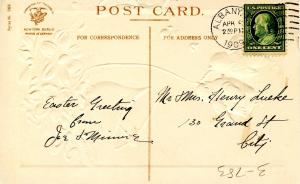 POST CARD.
NEW YORK, BERLIN
FOR CORRESPONDENCE
FOR ADDRESS ONLY
ALBANY
APR
2 30 P
190
U.S. POSTAGE
ONE CENT
Easter Greeting
from
Mr & Mrs. Henry Lucke
130 Grand St
City.